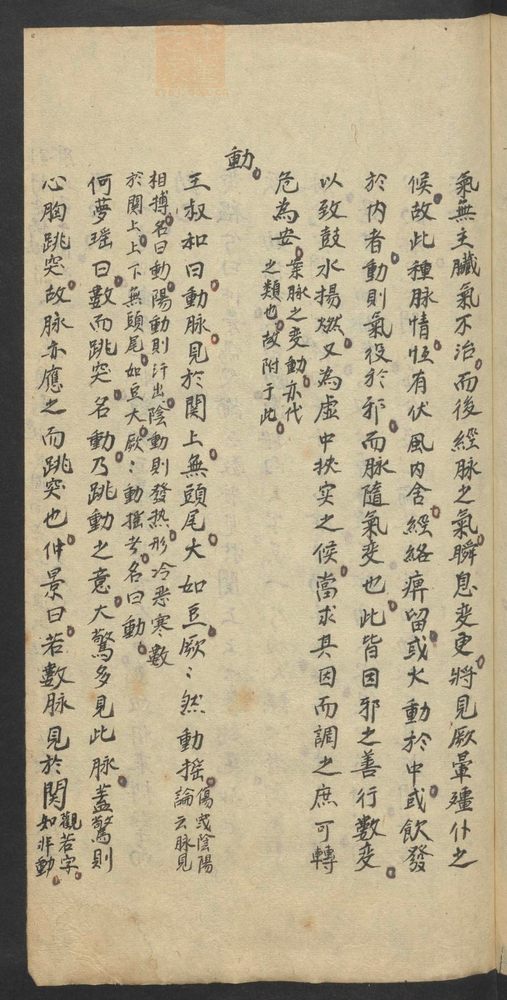 氣無主臟氣不治而後經脉之氣瞬息变更將見厥暈殭仆之
候故此種脉情恆有伏風内舍經絡痹留或火動於中或飲發
於内者動則氣役於邪而脉隨氣变也此皆因邪之善行数变
以致鼓水揚燃又為虛中挾实之候當求其因而調之庶可轉
危為安案脉之变動亦代
之類也故附于此
動
王叔和曰動脉見於関上無頭尾大如豆厥〻然動摇傷寒隂陽
論云脉見
於関上上下無頭尾如豆大厥〻動摇者名曰動
相搏名曰動陽動則汗出隂動則發热形冷恶寒數
何夢瑶曰數而跳突名動乃跳動之意大驚多見此脉蓋驚則
心胸跳突故脉亦應之而跳突也仲景曰若數脉見於関觀若字
如非動